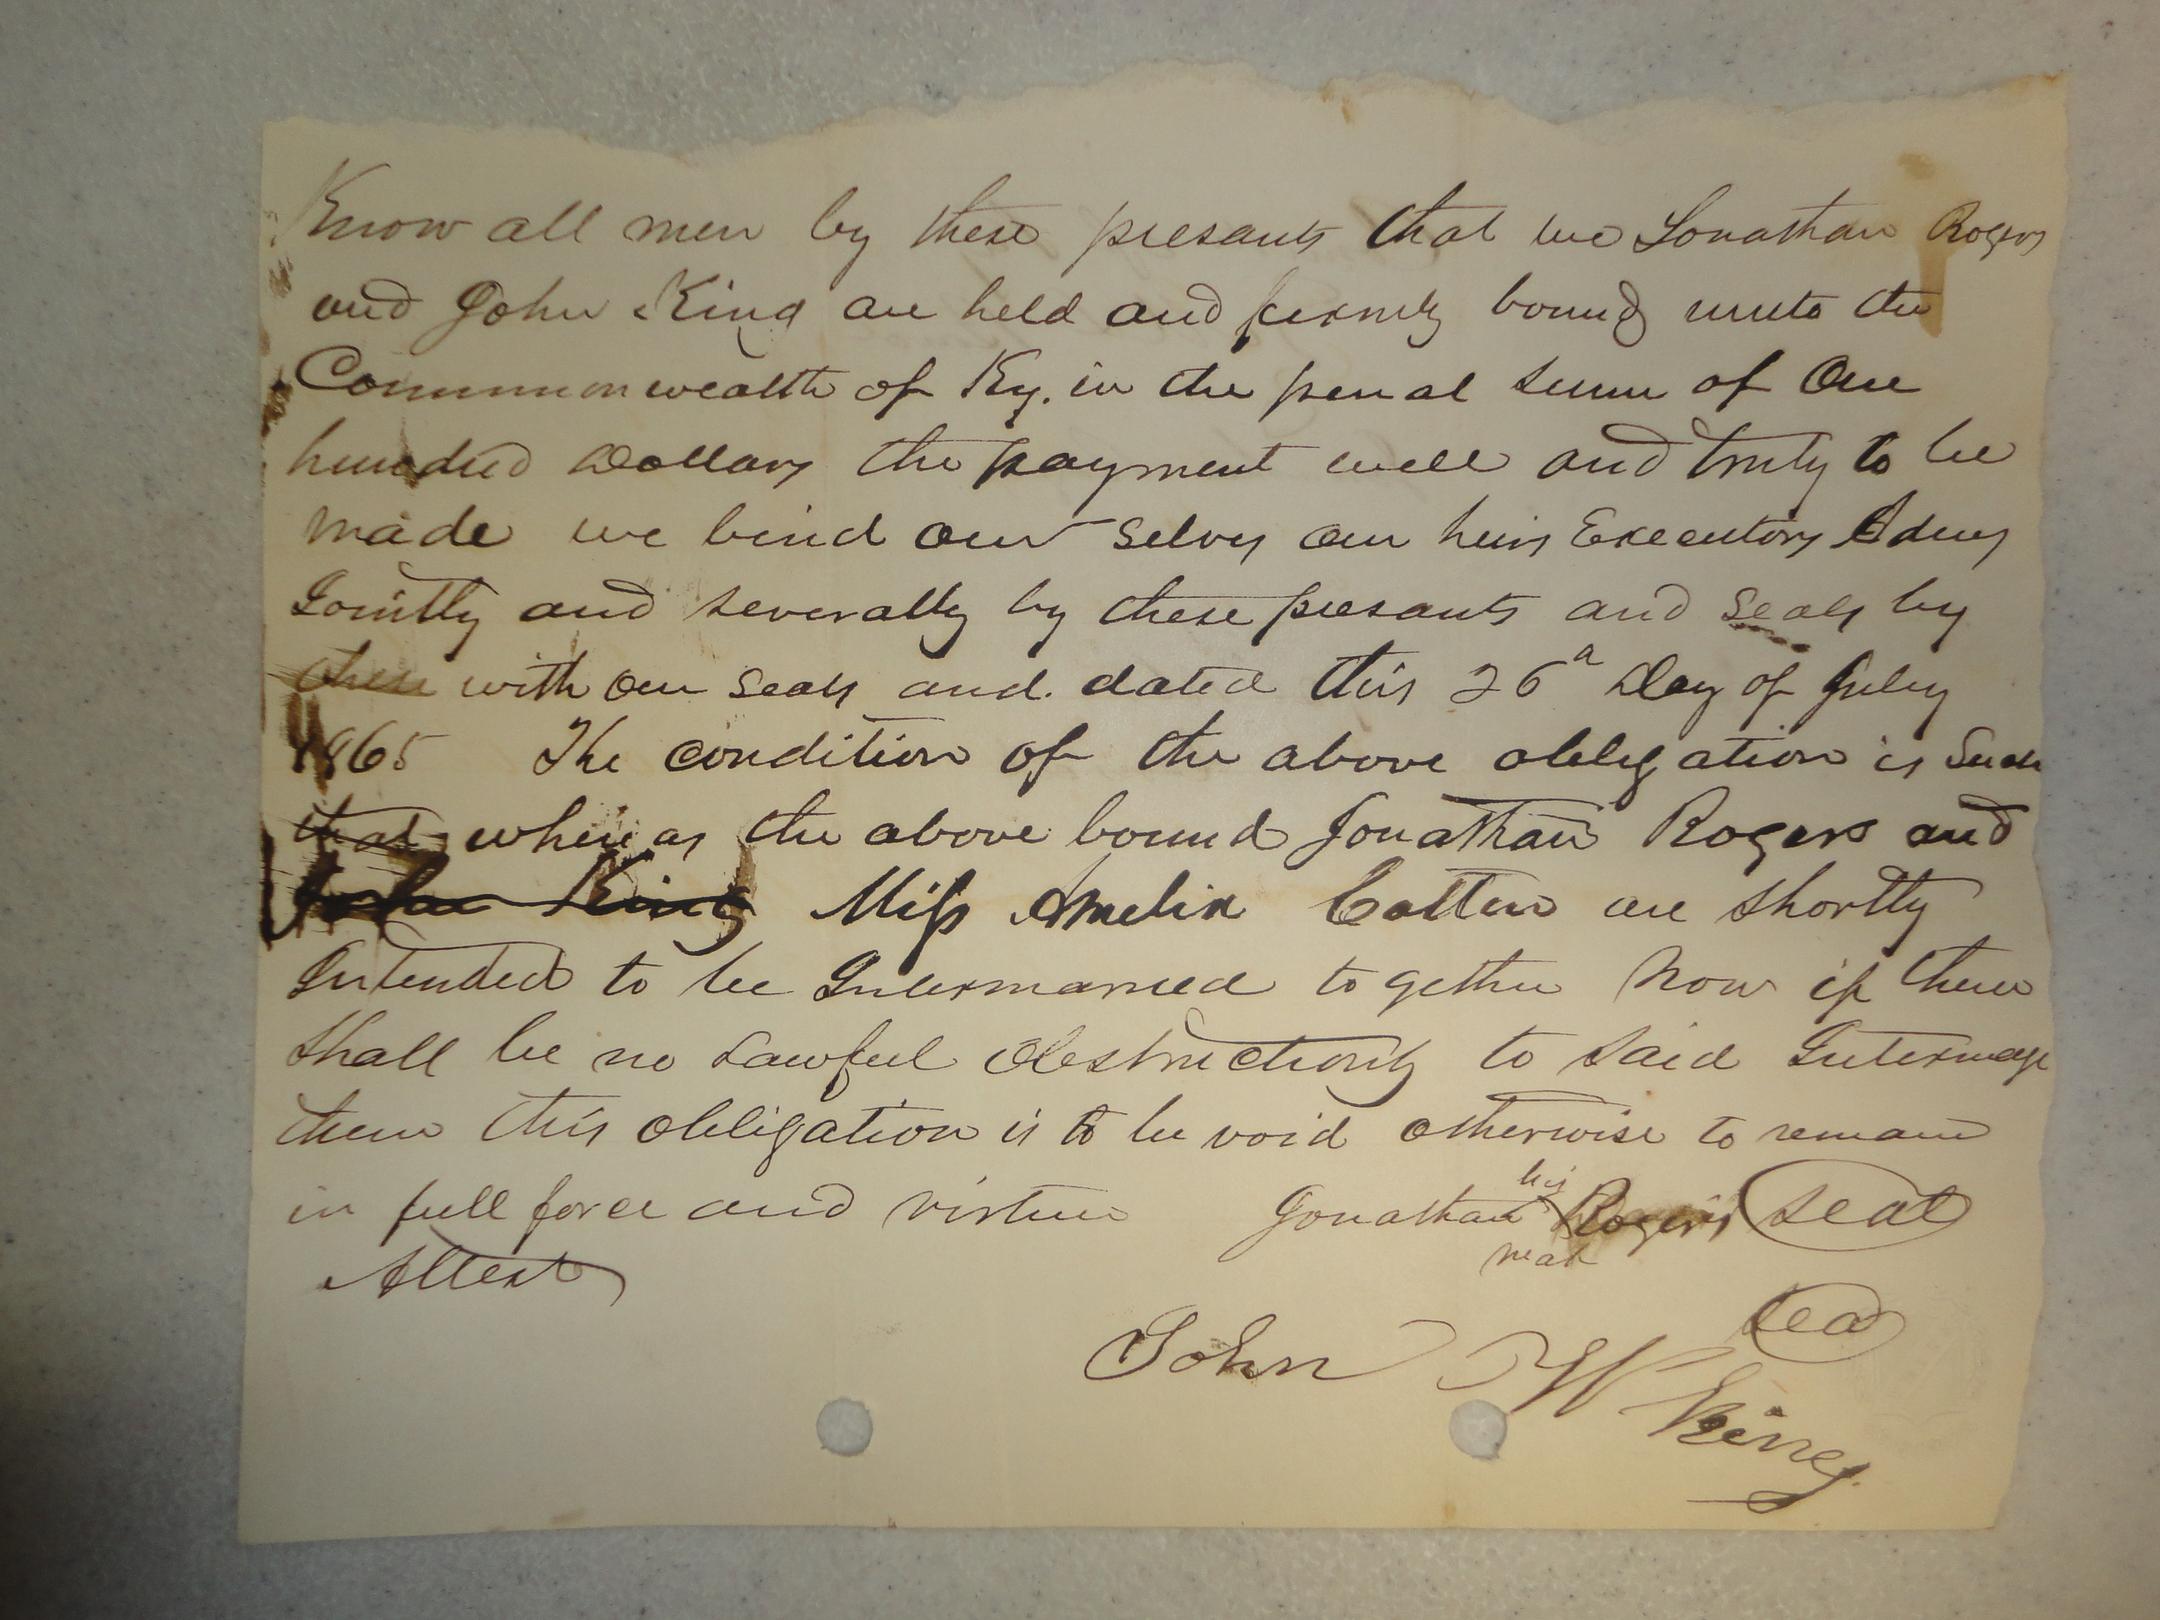 Know all men by these presants that we Jonathan Rogers
and John King are held and firmly bound unto the
Commonwealth of Ky. in the penal sum of One
hundred Dollars the payment well and truly to be
made we bind our selves our heirs Executors Adms
Jointly and severally by these presants and seals by
these with our seals and dated this 26 Day of July
1865 The condition of the above obligation is Such
that whereas the above bound Jonathan Rogers and
John King Miss Amelia Cotten are shortly
Intended to be Intermarried together Now if there
shall be no Lawful obstructions to said Intermage
then this obligation is to be void otherwise to remain
in full force and virtue Jonathan his Rogers seal
mark
Attest
seal
John W King